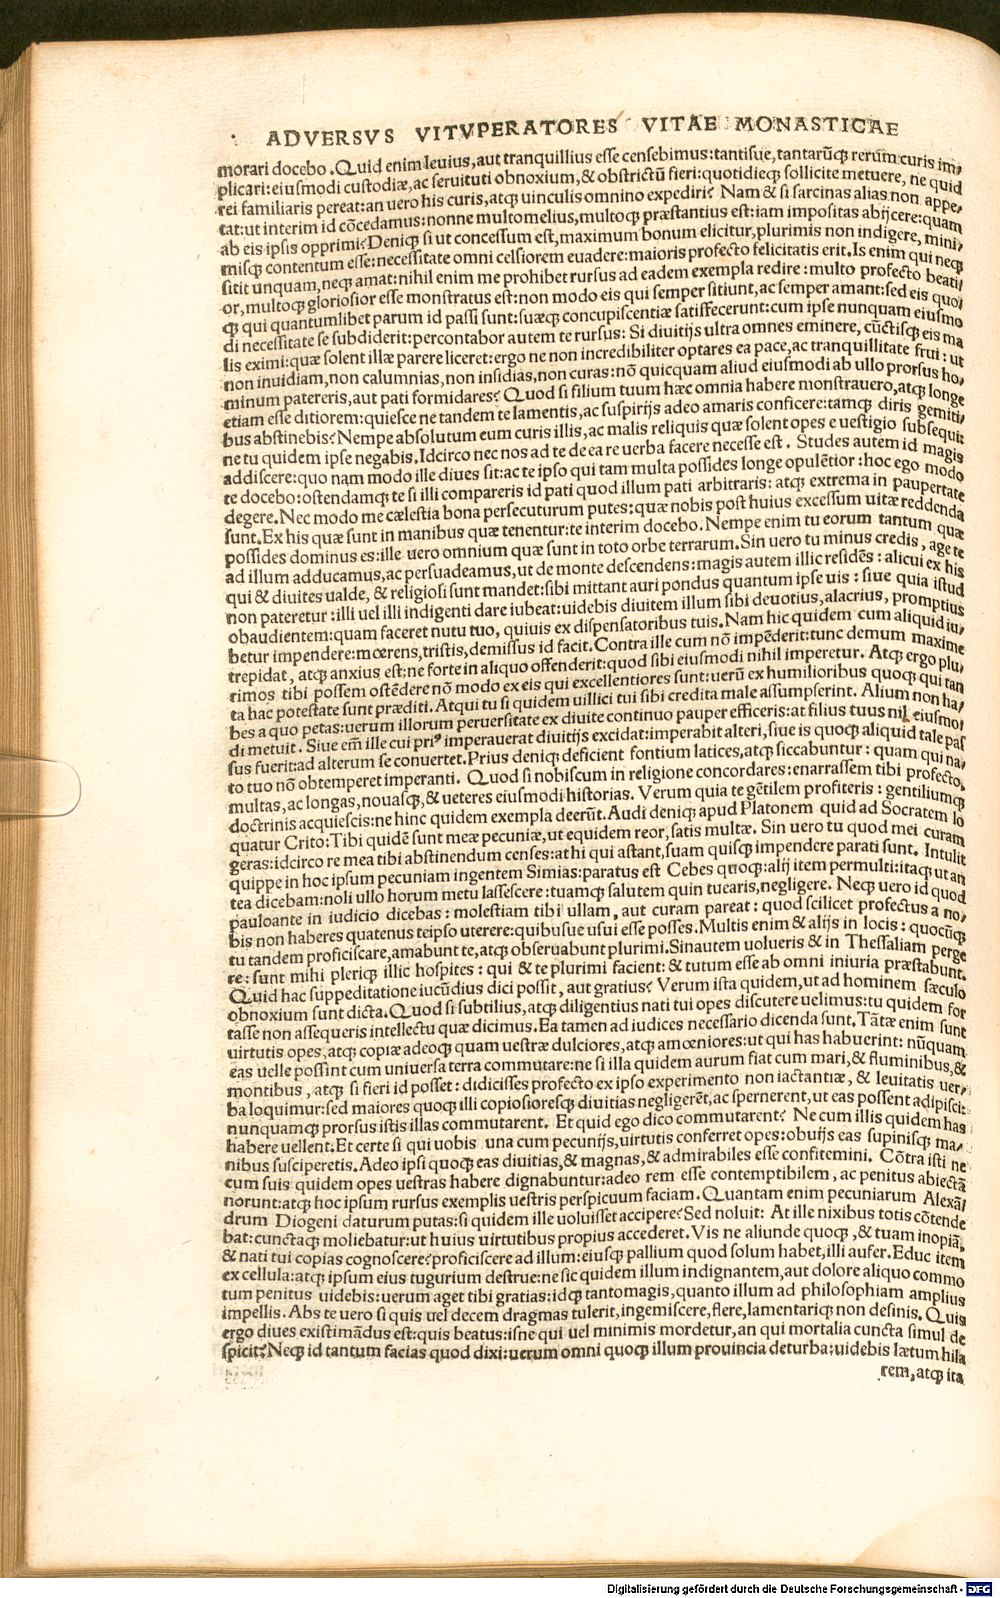 ADVERSVS VITVPERATORES VITAE MONASTICAE
morari docebo. Quid enim leuius, aut tranquillius esse censebimus: tantisue, tantarūq; rerum curis im/
plicari: eiusmodi custodiæ, ac seruituti obnoxium, & obstrictū fieri: quotidieq; sollicite metuere, ne quid
rei familiaris pereat: an uero his curis, atq; uinculis omnino expediri? Nam & si sarcinas alias non appe/
tat: ut interim id cōcedamus: nonne multo melius, multoq; præstantius est: iam impositas abijcere: quam
ab eis ipsis opprimi? Deniq; si ut concessum est, maximum bonum elicitur, plurimis non indigere, mini/
misq; contentum esse: necessitate omni celsiorem euadere: maioris profecto felicitatis erit. Is enim qui neq;
sitit unquam, neq; amat: nihil enim me prohibet rursus ad eadem exempla redire: multo profecto beati/
or, multoq; gloriosior esse monstratus est: non modo eis qui semper sitiunt, ac semper amant: sed eis quo/
q; qui quantumlibet parum id passi sunt: suæq; concupiscentiæ satisfecerunt: cum ipse nunquam eiusmo
di necessitate se subdiderit: percontabor autem te rursus: Si diuitijs ultra omnes eminere, cūctisq; eis ma
lis eximi: quæ solent illæ parere liceret: ergo ne non incredibiliter optares ea pace, ac tranquillitate frui: ut
non inuidiam, non calumnias, non insidias, non curas: nō quicquam aliud eiusmodi ab ullo prorsus ho/
minum patereris, aut pati formidares? Quod si filium tuum hæc omnia habere monstrauero, atq; longe
etiam esse ditiorem: quiesce ne tandem te lamentis, ac suspirijs adeo amaris conficere: tamq; diris gemiti/
bus abstinebis? Nempe absolutum eum curis illis, ac malis reliquis quæ solent opes e uestigio subsequi:
ne tu quidem ipse negabis. Idcirco nec nos ad te de ea re uerba facere necesse est. Studes autem id magis
addiscere: quo nam modo ille diues sit: ac te ipso qui tam multa possides longe opulētior: hoc ego modo
te docebo: ostendamq; te si illi compareris id pati quod illum pati arbitraris: atq; extrema in paupertate
degere. Nec modo me cælestia bona persecuturum putes: quæ nobis post huius excessum uitæ reddenda
sunt. Ex his quæ sunt in manibus quæ tenentur: te interim docebo. Nempe enim tu eorum tantum quæ
possides dominus es: ille uero omnium quæ sunt in toto orbe terrarum. Sin uero tu minus credis, age te
ad illum adducamus, ac persuadeamus, ut de monte descendens: magis autem illic residēs: alicui ex his
qui & diuites ualde, & religiosi sunt mandet: sibi mittant auri pondus quantum ipse uis: siue quia istud
non pateretur: illi uel illi indigenti dare iubeat: uidebis diuitem illum sibi deuotius, alacrius, promptius
obaudientem: quam faceret nutu tuo, quiuis ex dispensatoribus tuis. Nam hic quidem cum aliquid iu/
betur impendere: mœrens, tristis, demissus id facit. Contra ille cum nō impēderit: tunc demum maxime
trepidat, atq; anxius est: ne forte in aliquo offenderit: quod sibi eiusmodi nihil imperetur. Atq; ergo plu/
rimos tibi possem ostēdere nō modo ex eis qui excellentiores sunt: uerū ex humilioribus quoq; qui tan
ta hac potestate sunt præditi. Atqui tu si quidem uillici tui sibi credita male assumpserint. Alium non ha/
bes a quo petas: uerum illorum peruersitate ex diuite continuo pauper efficeris: at filius tuus nil eiusmo/
di metuit. Siue em̄ ille cui priꝰ imperauerat diuitijs excidat: imperabit alteri, siue is quoq; aliquid tale pas
sus fuerit: ad alterum se conuertet. Prius deniq; deficient fontium latices, atq; siccabuntur: quam qui na/
to tuo nō obtemperet imperanti. Quod si nobiscum in religione concordares: enarrassem tibi profecto,
multas, ac longas, nouasq;, & ueteres eiusmodi historias. Verum quia te gētilem profiteris: gentiliumq;
doctrinis acquiescis: ne hinc quidem exempla deerūt. Audi deniq; apud Platonem quid ad Socratem lo
quatur Crito: Tibi quidē sunt meæ pecuniæ, ut equidem reor, satis multæ. Sin uero tu quod mei curam
geras: idcirco re mea tibi abstinendum censes: at hi qui astant, suam quisq; impendere parati sunt. Intulit
quippe in hoc ipsum pecuniam ingentem Simias: paratus est Cebes quoq;: alij item permulti: itaq; ut an
tea dicebam: noli ullo horum metu lassescere: tuamq; salutem quin tuearis, negligere. Neq; uero id quod
pauloante in iudicio dicebas: molestiam tibi ullam, aut curam pareat: quod scilicet profectus a no/
bis non haberes quatenus teipso uterere: quibusue usui esse posses. Multis enim & alijs in locis: quocūq;
tu tandem proficiscare, amabunt te, atq; obseruabunt plurimi. Sinautem uolueris & in Thessaliam perge
re: sunt mihi pleriq; illic hospites: qui & te plurimi facient: & tutum esse ab omni iniuria præstabunt.
Quid hac suppeditatione iucūdius dici possit, aut gratius? Verum ista quidem, ut ad hominem sæculo
obnoxium sunt dicta. Quod si subtilius, atq; diligentius nati tui opes discutere uelimus: tu quidem for
tasse non assequeris intellectu quæ dicimus. Ea tamen ad iudices necessario dicenda sunt. Tātæ enim sunt
uirtutis opes, atq; copiæ adeoq; quam uestræ dulciores, atq; amœniores: ut qui has habuerint: nūquam
eas uelle possint cum uniuersa terra commutare: ne si illa quidem aurum fiat cum mari, & fluminibus, &
montibus, atq; si fieri id posset: didicisses profecto ex ipso experimento non iactantiæ, & leuitatis uer/
ba loquimur: sed maiores quoq; illi copiosioresq; diuitias negligerēt, ac spernerent, ut eas possent adipisci:
nunquamq; prorsus istis illas commutarent. Et quid ego dico commutarent? Ne cum illis quidem has
habere uellent. Et certe si qui uobis una cum pecunijs, uirtutis conferret opes: obuijs eas supinisq; ma/
nibus susciperetis. Adeo ipsi quoq; eas diuitias, & magnas, & admirabiles esse confitemini. Cōtra isti ne
cum suis quidem opes uestras habere dignabuntur: adeo rem esse contemptibilem, ac penitus abiectā
norunt: atq; hoc ipsum rursus exemplis uestris perspicuum faciam. Quantam enim pecuniarum Alexā/
drum Diogeni daturum putas: si quidem ille uoluisset accipere? Sed noluit: At ille nixibus totis cōtende
bat: cunctaq; moliebatur: ut huius uirtutibus propius accederet. Vis ne aliunde quoq;, & tuam inopiā,
& nati tui copias cognoscere? proficiscere ad illum: eiusq; pallium quod solum habet, illi aufer. Educ item
ex cellula: atq; ipsum eius tugurium destrue: ne sic quidem illum indignantem, aut dolore aliquo commo
tum penitus uidebis: uerum aget tibi gratias: idq; tanto magis, quanto illum ad philosophiam amplius
impellis. Abs te uero si quis uel decem dragmas tulerit, ingemiscere, flere, lamentariq; non desinis. Quis
ergo diues existimādus est: quis beatus: isne qui uel minimis mordetur, an qui mortalia cuncta simul de
spicit? Neq; id tantum facias quod dixi: uerum omni quoq; illum prouincia deturba: uidebis lætum hila
rem, atq; ita
Digitalisierung gefördert durch die Deutsche Forschungsgemeinschaft - DFG